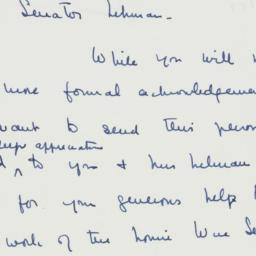 Senator Lehman -
While you will
more formal acknowledgeme
want to send this person
deep appreciation
to you & Mrs Lehman
for your generous help
work of the Home